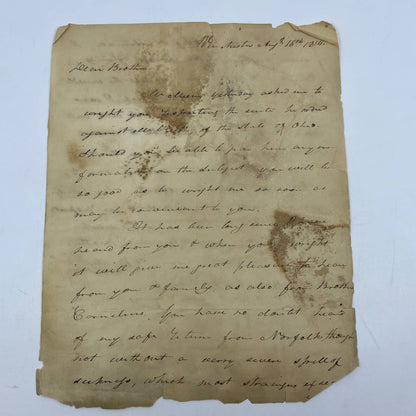 Augt 18th
Dear Brother
yesterday asked me to
wright you respecting the suite he
against of the State of Ohio.
Should you be able to give him any in
formation on the subject you will be
so good as to wright me so soon as
may be convenient to you.
It has been long since
heard from you & when you wright
it will give me great pleasure to hear
from you & family, as also from Brother
Cornelius. You have no doubt heard
of my safe return from Norfolk though
not without a very severe spell of
sickness, which most